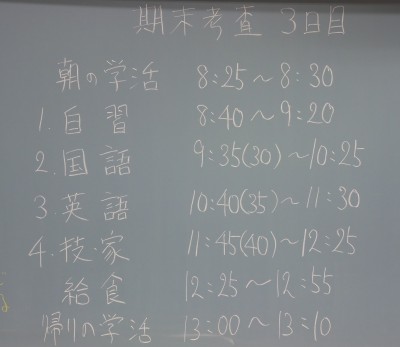 期末考査 3日目
朝の学活 8:25~8:30
1.自習 8:40~9:20
2.国語 9:35(30)~10:25
3.英語 10:40(35)~11:30
4.技・家 11:45(40)~12:25
給食 12:25~12:55
帰りの学活 13:00~13:10